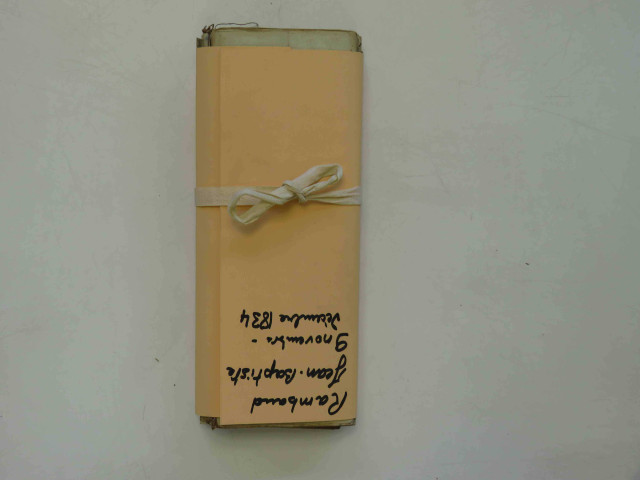 Rambaud
Jean-Baptiste
9 novembre -
décembre 1834